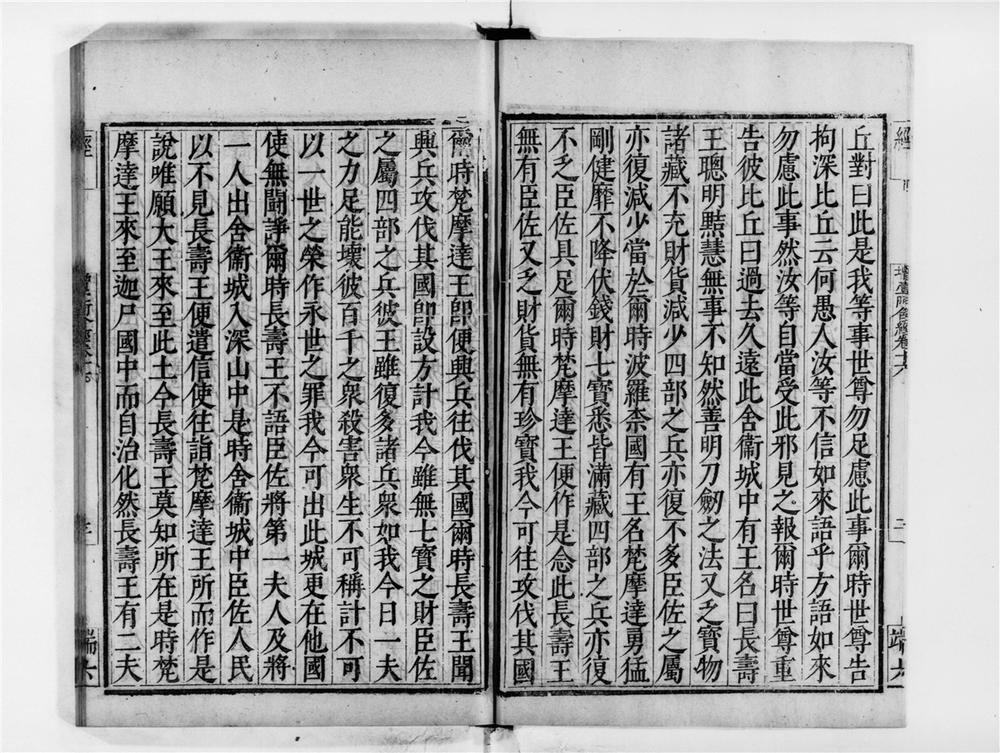 丘對曰此是我等事世尊勿足慮此事爾時世尊告
拘深比丘云何愚人汝等不信如來語乎方語如來
勿慮此事然汝等自當受此邪見之報爾時世尊重
告彼比丘曰過去久遠此舍衞城中有王名曰長壽
王聰明黠慧無事不知然善明刀劒之法又乏寶物
諸藏不充財貨減少四部之兵亦復不多臣佐之屬
亦復減少當於爾時波羅柰國有王名梵摩達勇猛
剛健靡不降伏錢財七寶悉皆滿藏四部之兵亦復
不乏臣佐具足爾時梵摩達王便作是念此長壽王
無有臣佐又乏財貨無有珍寶我今可往攻伐其國
爾時梵摩達王卽便興兵往伐其國爾時長壽王聞
興兵攻伐其國卽設方計我今雖無七寶之財臣佐
之屬四部之兵彼王雖復多諸兵衆如我今日一夫
之力足能壞彼百千之衆殺害衆生不可稱計不可
以一世之榮作永世之罪我今可出此城更在他國
使無鬭諍爾時長壽王不語臣佐將第一夫人及將
一人出舍衞城入深山中是時舍衞城中臣佐人民
以不見長壽王便遣信使往詣梵摩達王所而作是
說唯願大王來至此土今長壽王莫知所在是時梵
摩達王來至迦尸國中而自治化然長壽王有二夫
經
增壹阿含經卷十六
三
端六